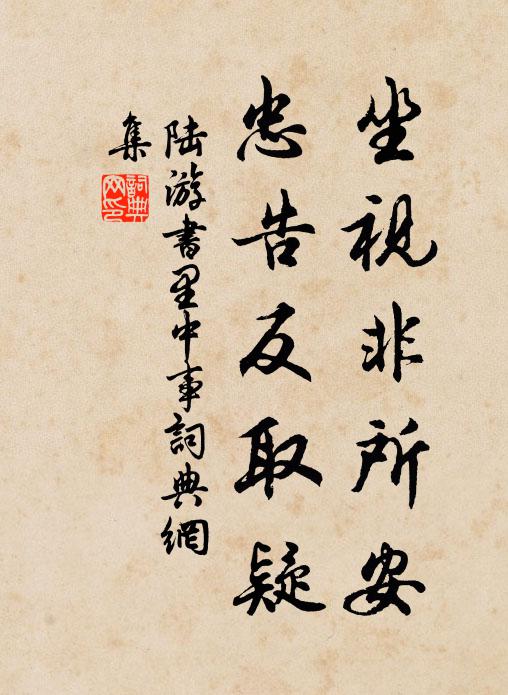 坐視非所安
忠告反取疑
陸游書里中事詞典網
集
詞典
网印